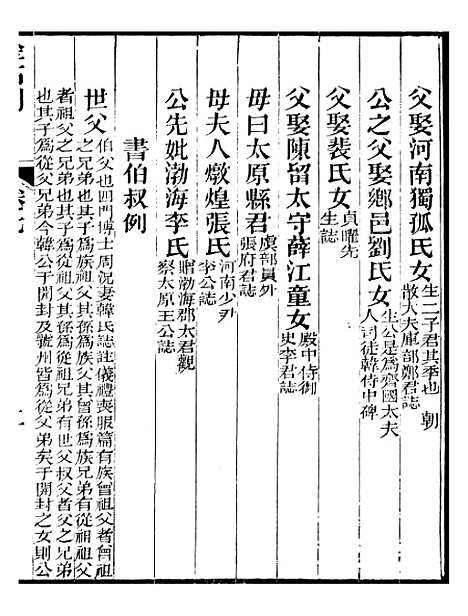 父娶河南獨孤氏女生二子君其季也　朝散大夫庫部鄭君誌
公之父娶鄉邑劉氏女生公是爲齊國太夫人司徒韓侍中碑
父娶裴氏女貞曜先生誌
父娶陳留太守薛江童女殿中侍御史李君誌
母曰太原縣君虞部員外張府君誌
母夫人燉煌張氏河南少尹李公誌
公先妣渤海李氏贈渤海郡太君觀察太原王公誌
書伯叔例
世父伯父也四門博士周況妻韓氏誌註儀禮喪服篇有族曾祖父者曾祖父
之兄弟也其子爲族祖父其孫爲族父其曾孫爲族兄弟有從祖祖父
者祖父之兄弟也其子爲從祖父其孫爲從祖兄弟有世父叔父者父之兄弟
也其子爲從父兄弟今韓公于開封及虢州皆爲從父弟矣于開封之女則公